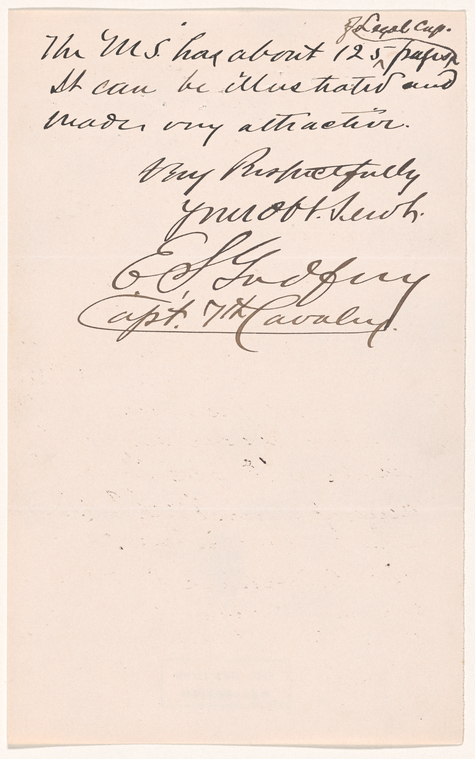 of Legal Cap.
The M.S. has about 125 pages
It can be illustrated and
made very attractive.
Very Respectfully
Your Obt. Servt.
E S Godfrey
Capt. 7th Cavalry.